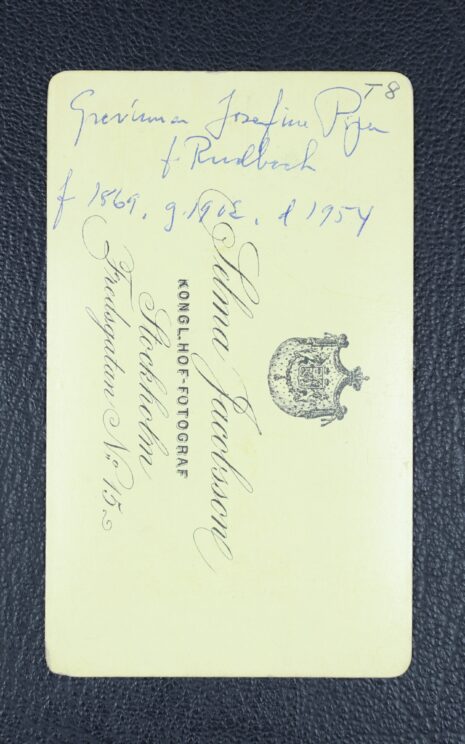 T 8
Grevinnan Josefine Piper
f. Rudbeck
f 1869, g. 1902, d 1954
Selma Jacobsson
KONGL. HOF-FOTOGRAF
Stockholm
Fredsgatan No 15.